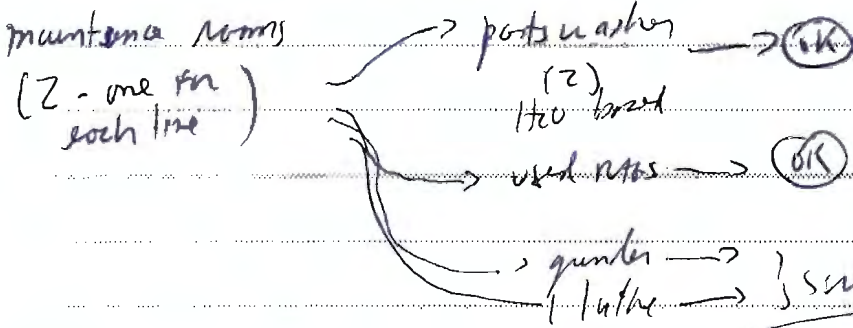 maintence rooms
(2 - one for
each line)
parts washer → OK
(2)
H2O based
used RAGS → OK
grinder →
1 lathe →